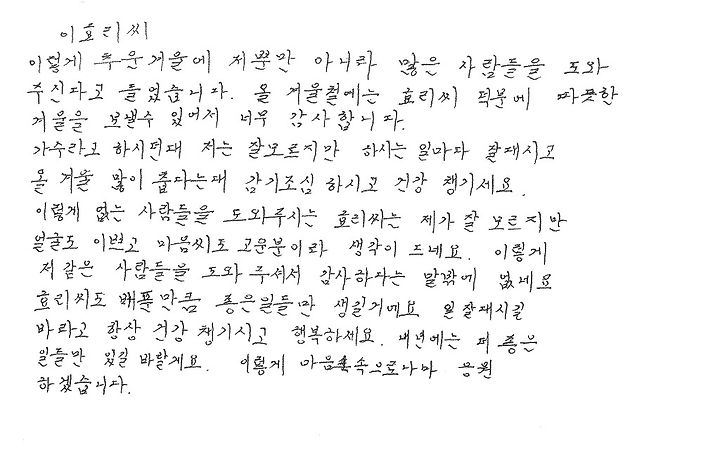 이효리씨
이렇게 추운겨울에 저뿐만 아니라 많은 사람들을 도와
주신다고 들었습니다. 올 겨울철에는 효리씨 덕분에 따뜻한
겨울을 보낼수 있어서 너무 감사합니다.
가수라고 하시던대 저는 잘모르지만 하시는 일마다 잘돼시고
올 겨울 많이 춥다는대 감기조심 하시고 건강 챙기세요.
이렇게 없는 사람들을 도와주시는 효리씨는 제가 잘 모르지만
얼굴도 이쁘고 마음씨도 고운분이라 생각이 드네요. 이렇게
저같은 사람들을 도와 주셔서 감사하다는 말밖에 없네요
효리씨도 배푼만큼 좋은일들만 생길거에요 일잘돼시길
바라고 항상 건강 챙기시고 행복하세요. 내년에는 더 좋은
일들만 있길 바랄게요. 이렇게 마음속으로나마 응원
하겠습니다.